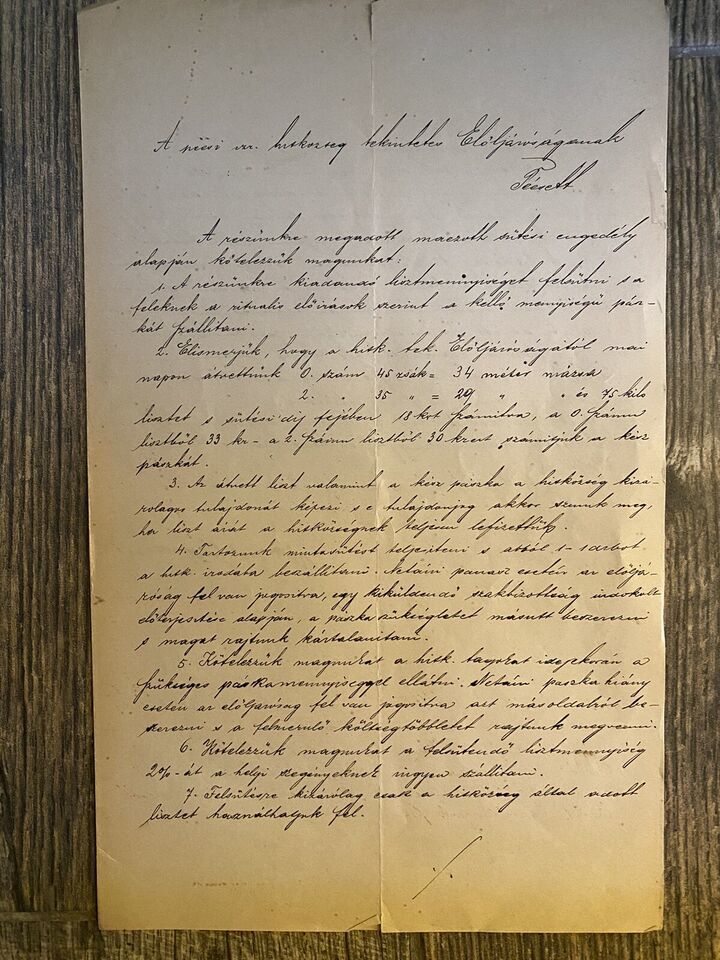 A pécsi izr. hitközseg tekintetes Elöljáróságának
Pécsett
A részünkre megadott maczoth sütési engedély
alapján kötelezzük magunkat:
1. A részünkre kiadandó lisztmennyiséget felsütni s a
feleknek a rituális előirások szerint a kellő menyiségű pász-
kát szállitani.
2. Elismerjük, hogy a hitk. tek. Elöljáróságától mai
napon átvettünk 0. szám 45 zsák = 34 méter mázsa
2. " 35 " = 26 " " és 75 kilo
lisztet s sütési dij fejében 13 krt számitva, a 0. számu
lisztből 33 kr - a 2. számu lisztből 30 krert számitjuk a kész
pászkát.
3. Az átvett liszt valamint a kész pászka a hitközség kizá-
rolagos tulajdonát képezi s e tulajdonjog akkor szünik meg,
ha liszt árát a hitközségnek teljesen lefizettük.
4. Tartozunk mintasütést teljesiteni s abból 1-1 darbot
a hitk. irodába beszállitani. Netáni panasz esetén az elöljá-
róság fel van jogositva, egy kiküldendő szakbizottság indokolt
előterjesztése alapján, a pászka szükségletet másutt beszerezni
s magát rajtunk kártalanitani.
5. Kötelezzük magunkat a hitk. tagokat idejekorán a
szükséges pászkamennyiséggel ellátni. Netáni paszka hiány
esetén az elöljáróság fel van jogositva azt másoldalról be-
szerezni s a felmerülő költségtöbbletet rajtunk megvenni.
6. Kötelezzük magunkat a felsütendő lisztmennyiség
2%-át a helyi szegényeknek ingyen szállitani.
7. Felsütésre kizárólag csak a hitközség által adott
lisztet használhatjuk fel.